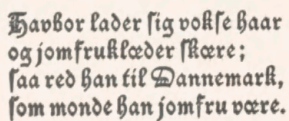 Havbor lader sig vokse haar
og jomfruklæder skære;
saa red han til Dannemark,
som monde han jomfru være.